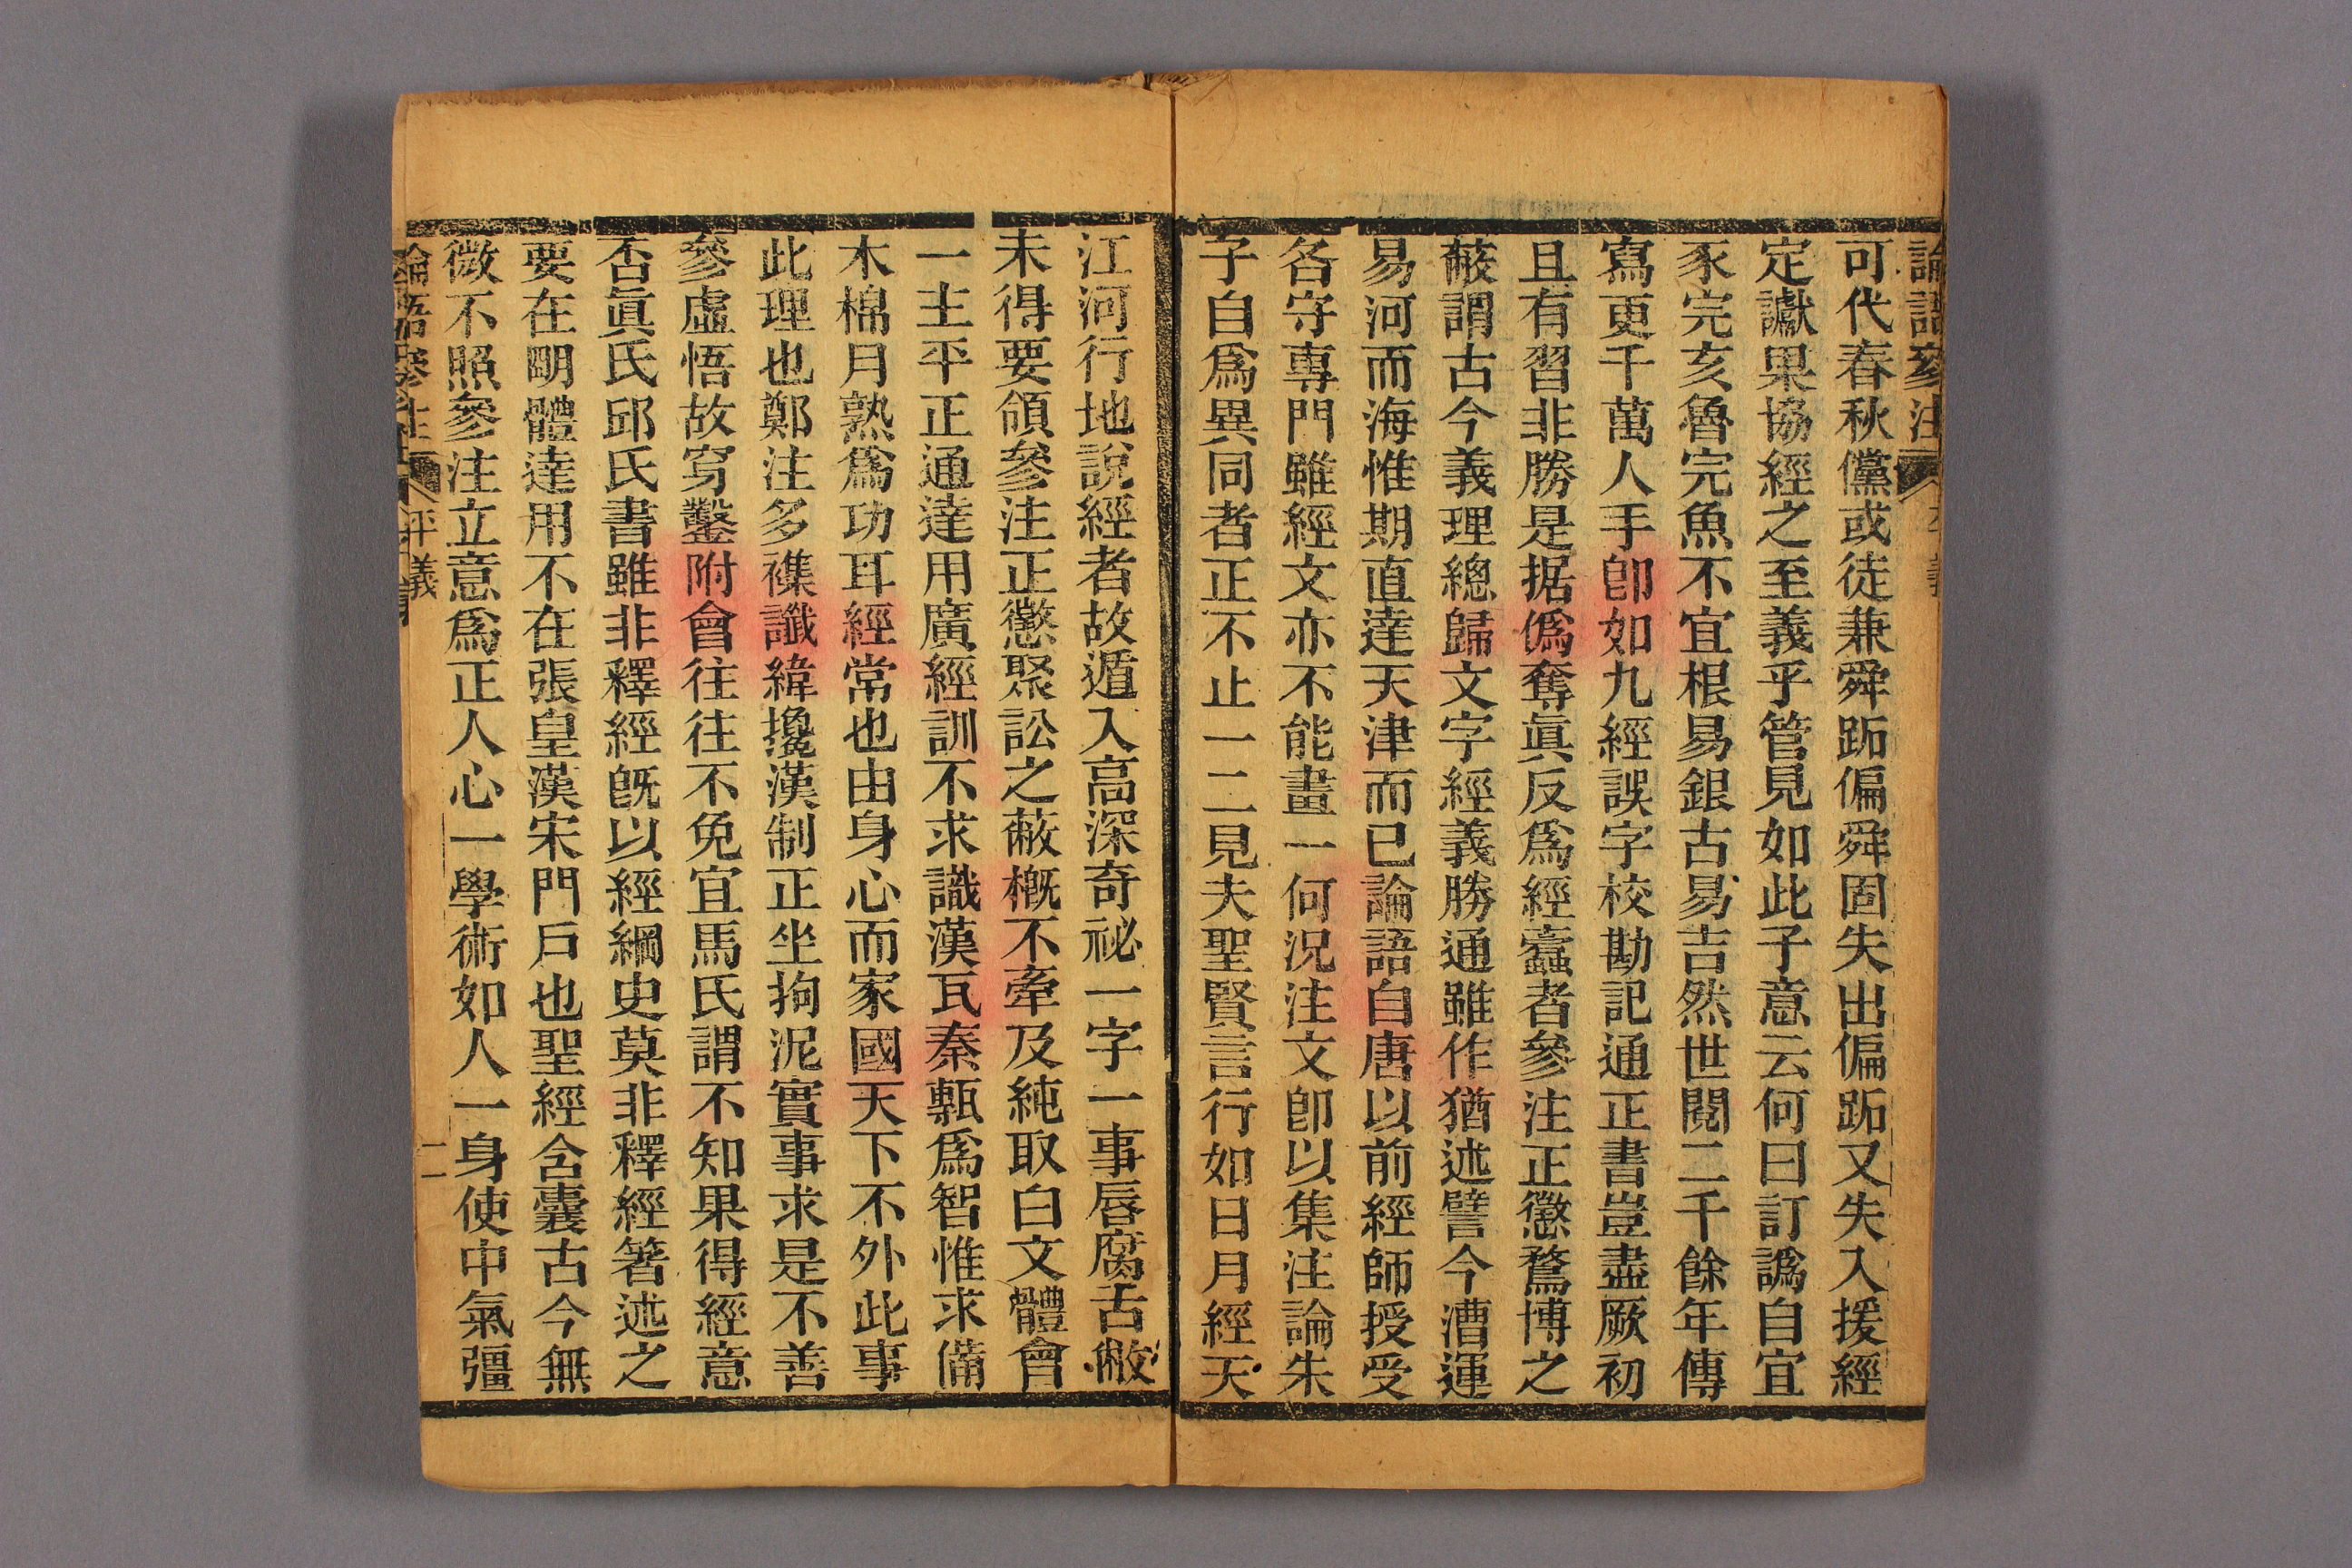 可代春秋儻或徒兼舜跖偏舜固失出偏跖又失入援經
定讞果協經之至義乎管見如此子意云何曰訂譌自宜
豕完亥魯完魚不宜根易銀古易吉然世閱二千餘年傳
寫更千萬人手卽如九經誤字校勘記通正書豈盡厥初
且有習非勝是据僞奪眞反爲經蠹者參注正懲鶩博之
蔽謂古今義理總歸文字經義勝通雖作猶述譬今漕運
易河而海惟期直達天津而已論語自唐以前經師授受
各守專門雖經文亦不能畫一何況注文卽以集注論朱
子自爲異同者正不止一二見夫聖賢言行如日月經天
江河行地說經者故遁入高深奇祕一字一事唇腐舌敝
未得要領參注正懲聚訟之蔽槪不牽及純取白文體會
一主平正通達用廣經訓不求識漢瓦秦甎爲智惟求備
木棉月熟爲功耳經常也由身心而家國天下不外此事
此理也鄭注多襍讖緯攙漢制正坐拘泥實事求是不善
參虛悟故穿鑿附會往往不免宜馬氏謂不知果得經意
否眞氏邱氏書雖非釋經旣以經綱史莫非釋經箸述之
要在明體達用不在張皇漢宋門戶也聖經含囊古今無
微不照參注立意爲正人心一學術如人一身使中氣彊
論語參注
平議
二